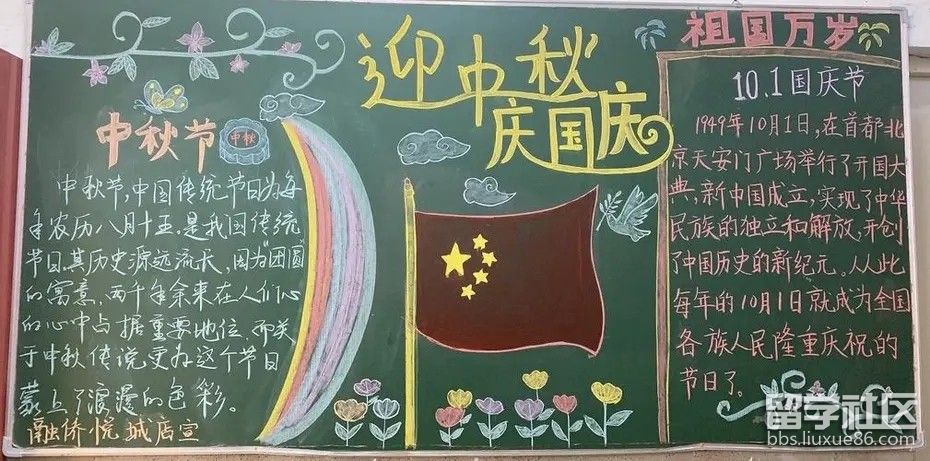 迎中秋
庆国庆
祖国万岁
中秋节
中秋
中秋节,中国传统节日为每
年农历八月十五,是我国传统
节日,其历史源远流长,因为“团圆”
的寓意,两千年余来在人们心
的心中占据重要地位,而关
于中秋传说,更为这个节日
蒙上了浪漫的色彩。
融侨悦城店宣
10.1国庆节
1949年10月1日,在首都北
京天安门广场举行了开国大
典,新中国成立,实现了中华
民族的独立和解放,开创
了中国历史的新纪元。从此
每年的10月1日就成为全国
各族人民隆重庆祝的
节日了。
留学社区
bbs.liuxue86.com